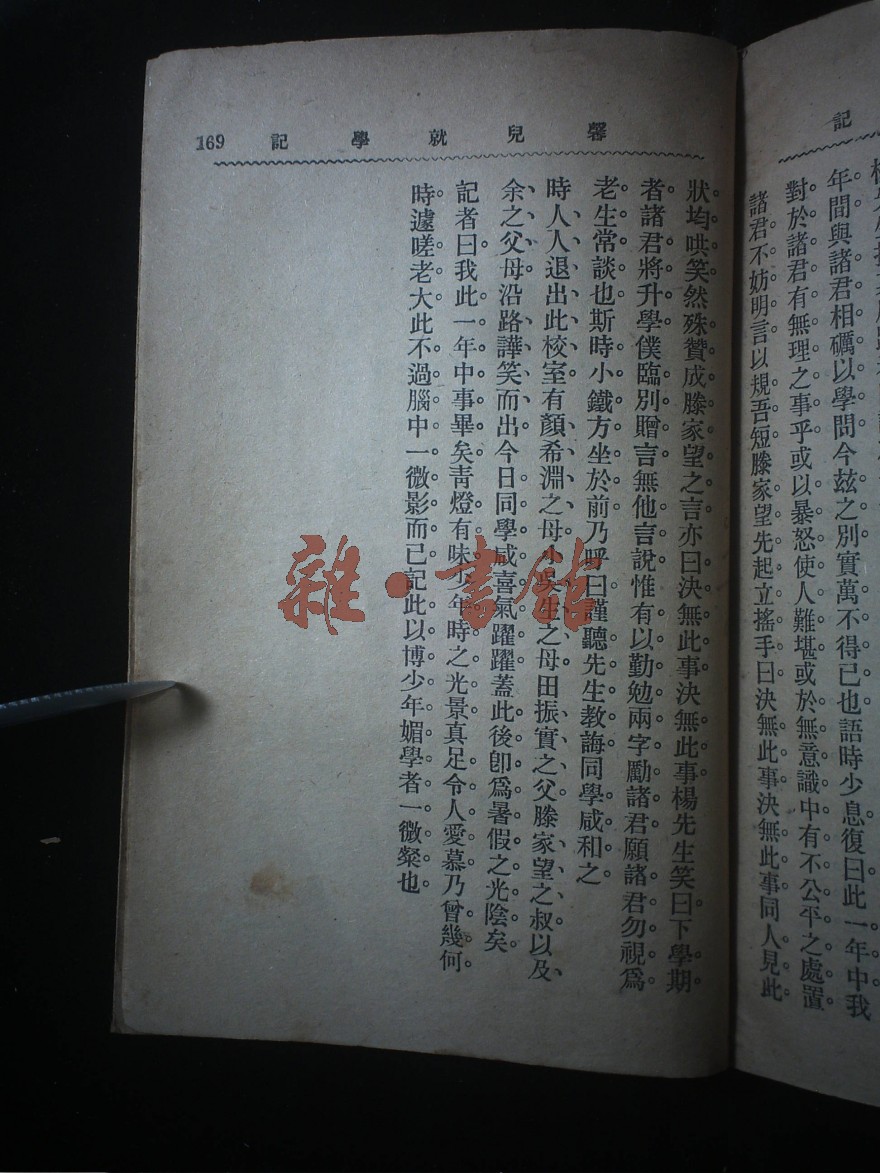 記
年間與諸君相礪以學問今玆之別實萬不得已也語時少息復曰此一年中我
對於諸君有無理之事乎或以暴怒使人難堪或於無意識中有不公平之處置
諸君不妨明言以規吾短滕家望先起立搖手曰決無此事決無此事同人見此
169 記學就兒馨
狀均哄笑然殊贊成滕家望之言亦曰決無此事決無此事楊先生笑曰下學期
者諸君將升學僕臨別贈言無他言說惟有以勤勉兩字勵諸君願諸君勿視爲
老生常談也斯時小鐵方坐於前乃呼曰謹聽先生教誨同學咸和之
時人人退出此校室有顏希淵之母小吳生之母田振實之父滕家望之叔以及
余之父母沿路譁笑而出今日同學咸喜氣躍躍蓋此後卽爲暑假之光陰矣
記者曰我此一年中事畢矣靑燈有味少年時之光景眞足令人愛慕乃曾幾何
時遽嗟老大此不過腦中一微影而已記此以博少年媚學者一微粲也
雜·書館